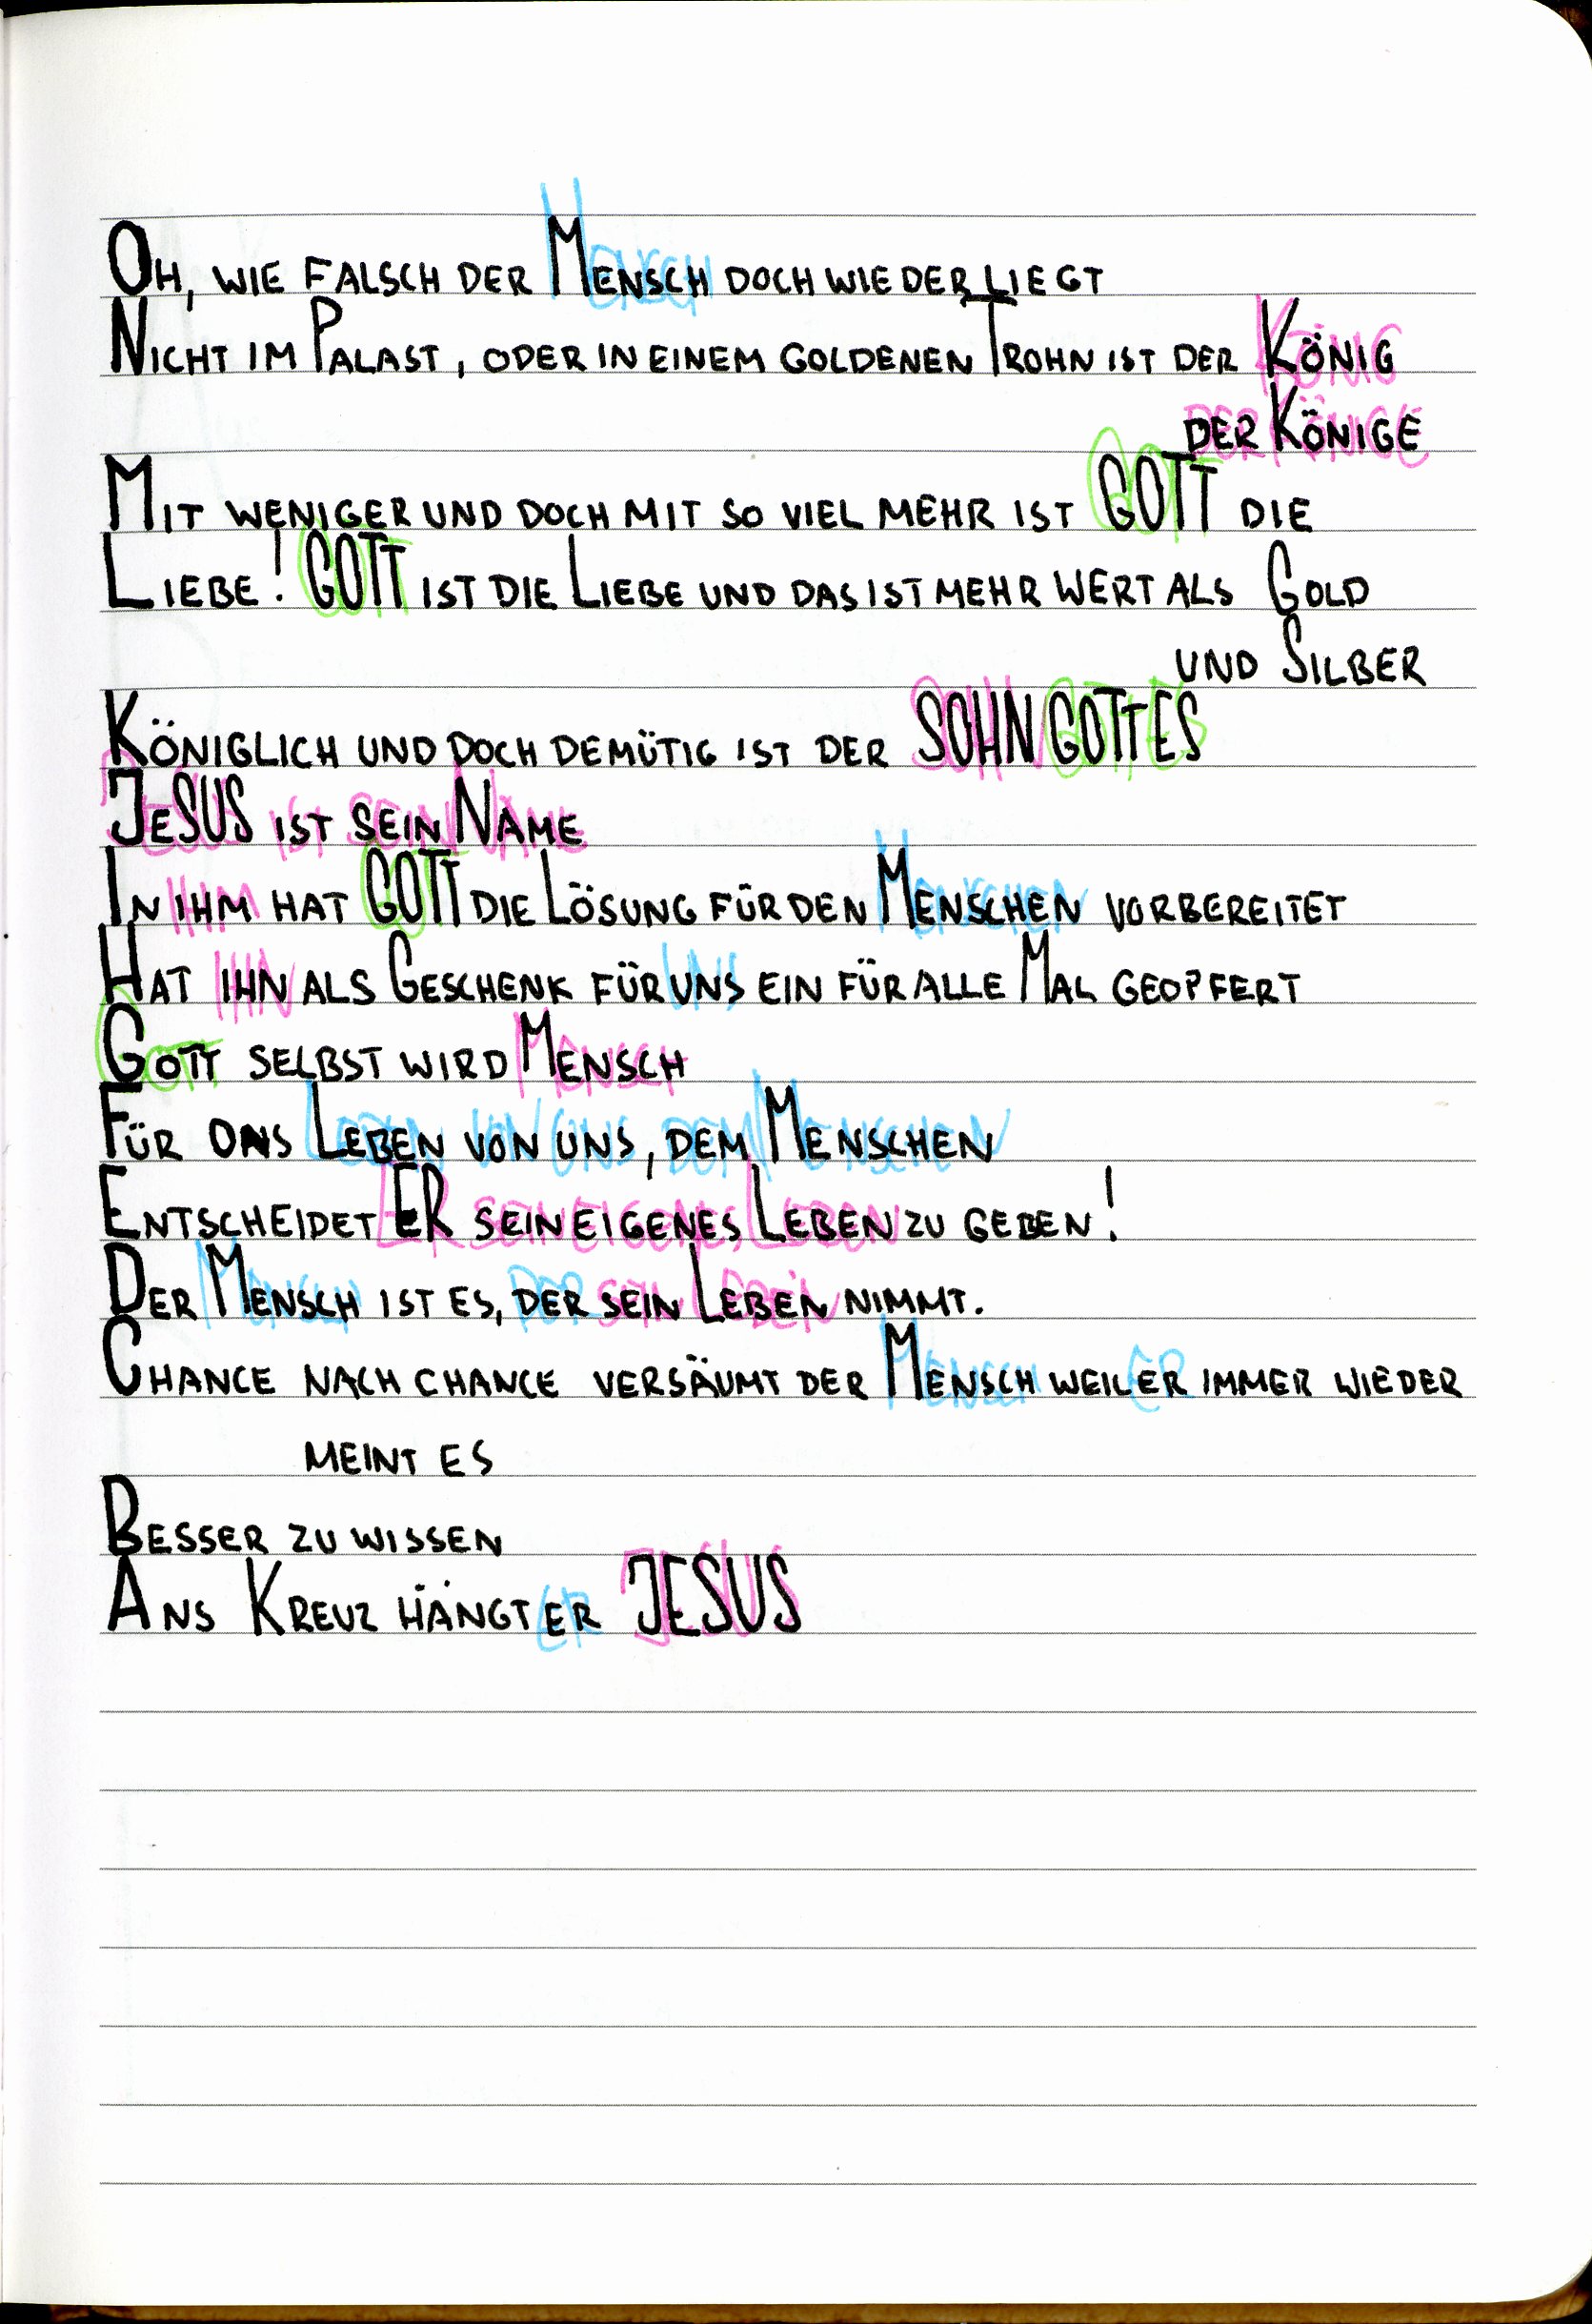 OH, WIE FALSCH DER MENSCH DOCH WIEDER LIEGT
NICHT IM PALAST, ODER IN EINEM GOLDENEN TROHN IST DER KÖNIG
DER KÖNIGE
MIT WENIGER UND DOCH MIT SO VIEL MEHR IST GOTT DIE
LIEBE! GOTT IST DIE LIEBE UND DAS IST MEHR WERT ALS GOLD
UND SILBER
KÖNIGLICH UND DOCH DEMÜTIG IST DER SOHN GOTTES
JESUS IST SEIN NAME
IN IHM HAT GOTT DIE LÖSUNG FÜR DEN MENSCHEN VORBEREITET
HAT IHN ALS GESCHENK FÜR UNS EIN FÜR ALLE MAL GEOPFERT
GOTT SELBST WIRD MENSCH
FÜR DAS LEBEN VON UNS, DEM MENSCHEN
ENTSCHEIDET ER SEIN EIGENES LEBEN ZU GEBEN!
DER MENSCH IST ES, DER SEIN LEBEN NIMMT.
CHANCE NACH CHANCE VERSÄUMT DER MENSCH WEIL ER IMMER WIEDER
MEINT ES
BESSER ZU WISSEN
ANS KREUZ HÄNGT ER JESUS